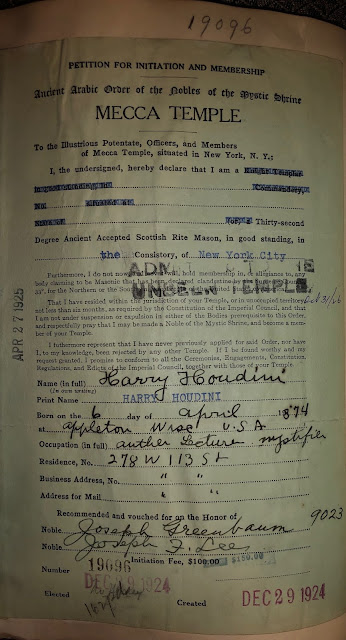 19096
PETITION FOR INITIATION AND MEMBERSHIP
Ancient Arabic Order of the Nobles of the Mystic Shrine
MECCA TEMPLE
To the Illustrious Potentate, Officers, and Members
of Mecca Temple, situated in New York, N. Y.:
I, the undersigned, hereby declare that I am a Knight Templar
Commandery,
No. situated at
State of (or, a Thirty-second
Degree Ancient Accepted Scottish Rite Mason, in good standing, in
the Consistory, of New York City
Furthermore, I do not now hold membership in, or allegiance to, any
body claiming to be Masonic
33°, for the Northern or the Southern
UNIFORM TEMPLE
That I have resided within the jurisdiction of your Temple, or in unoccupied territory
not less than six months, as required by the Constitution of the Imperial Council, and that
I am not under suspension or expulsion in either of the Bodies prerequisite to this Order,
and respectfully pray that I may be made a Noble of the Mystic Shrine, and become a mem-
ber of your Temple.
I furthermore represent that I have never previously applied for said Order, nor have
I, to my knowledge, been rejected by any other Temple. If I be found worthy and my
request granted, I propose to conform to all the Ceremonies, Engagements, Constitution,
Regulations, and Edicts of the Imperial Council, together with those of your Temple.
APR 27 1925
Name (in full) Harry Houdini
(In own writing)
Print Name HARRY HOUDINI
Born on the 6 day of April 1874
at Appleton Wisc U.S.A
Occupation (in full) author Lecture mystifier
Residence, No. 278 W 113 St
Business Address, No. " "
Address for Mail " "
Recommended and vouched for on the Honor of
Noble Joseph Greenbaum 9023
Noble Joseph F. Lee
Initiation Fee, $100.00 $150.00
Number 19096
DEC 29 1924
Elected
Created DEC 29 1924